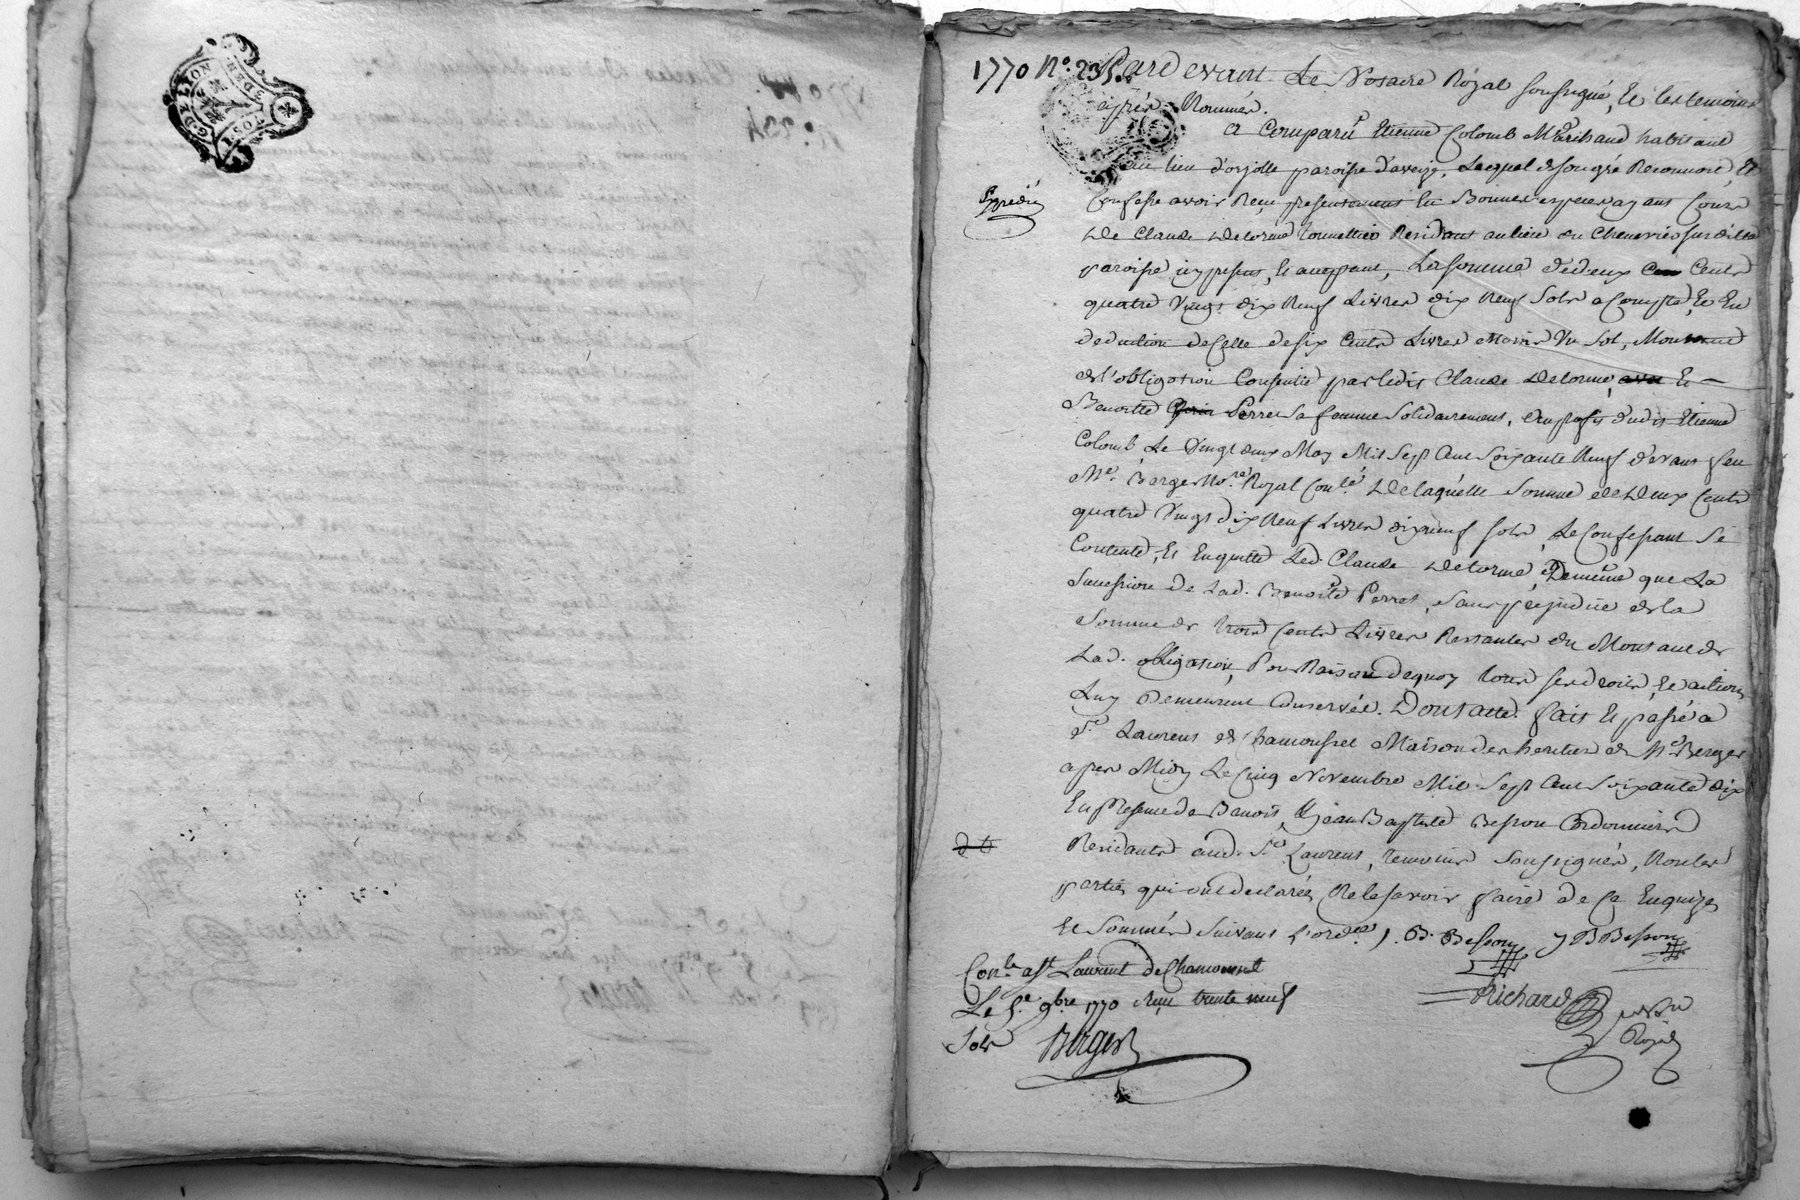 1770 N.o 235. Pardevant Le Notaire Royal soussigné, Et les temoins
après Nommés.
A Comparu Etienne Colomb Marchand habitant
au lieu d'orjolle paroisse d'aveize, Lequel de son gré Reconnoit, Et
Confesse avoir Reçu presentement En Bonnes especes ayant Cours
De Claude Delorme tonnellier Residant au lieu du Chenevier sur dite
paroisse icy present, Et acceptant, La somme de deux Cents
quatre Vingt dix Neuf Livres dix neuf Sols a Compte, Et En
deduction de Celle de six Cents Livres Moins Un Sol, Montant
de l'obligation Consentie par ledit Claude Delorme, Et
Benoitte Perret Sa femme Solidairement, au profit dudit Etienne
Colomb, Le Vingt deux May Mil Sept Cent Soixante Neuf devant feu
Me. Berger No.re Royal Con.lé De laquelle Somme de Deux Cents
quatre Vingt dix Neuf Livres dix neuf sols, Le Confessant Se
Contente, Et En quitte Led. Claude Delorme, De même que La
Succession de Lad. Benoitte Perret, Sans prejudice de la
Somme de trois Cents Livres Restantes du Montant de
Lad. obligation, Pour Raison de quoy tous ses droits, Et actions
Luy Demeurent Conservés. Dont acte. fait Et passé a
St. Laurent de Chamousset Maison des heritiers de Me Berger
apres Midy Le Cinq Novembre Mil Sept Cent Soixante dix
En presence de Benoit, Et Jean Baptiste Besson Cordonniers
Residants aud. St. Laurent, temoins Soussignés, Non les
parties qui ont declarées Ne le savoir faire de Ce Enquizes
Et Sommés Suivant L'ord.ce J. B. Besson J B Besson
Expedié
Con.lé a St Laurent de Chamousset
Le 5.e 9bre 1770 Reçu trente neuf
Sols Berger
Richard
Royal